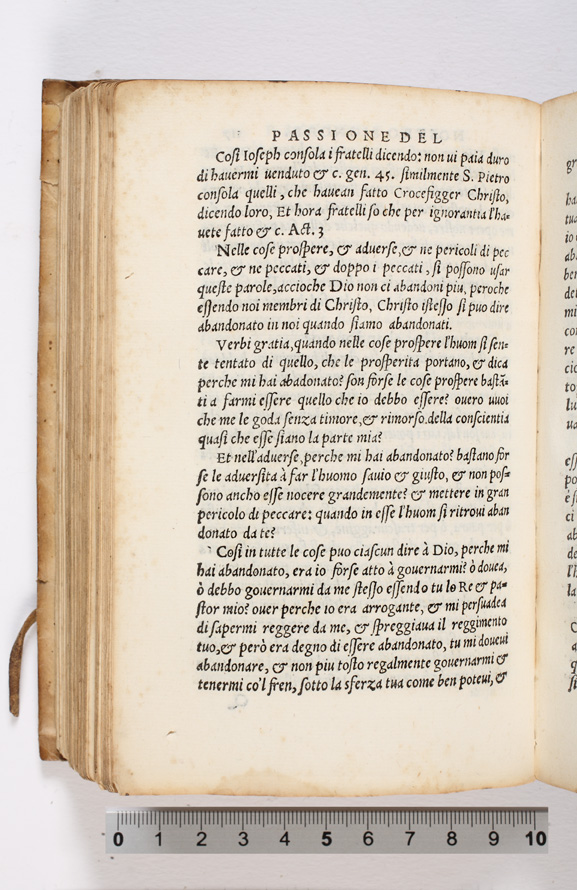 PASSIONE DEL
Cosi Ioseph consola i fratelli dicendo: non ui paia duro
di hauermi uenduto & c. gen. 45. similmente S. Pietro
consola quelli, che hauean fatto Crocefigger Christo,
dicendo loro, Et hora fratelli so che per ignorantia l'ha=
uete fatto & c. Act. 3
Nelle cose prospere, & aduerse, & ne pericoli di pec
care, & ne peccati, & doppo i peccati, si possono usar
queste parole, accioche Dio non ci abandoni piu, peroche
essendo noi membri di Christo, Christo istesso si puo dire
abandonato in noi quando siamo abandonati.
Verbi gratia, quando nelle cose prospere l'huom si sen=
te tentato di quello, che le prosperita portano, & dica
perche mi hai abadonato? son forse le cose prospere bastā=
ti a farmi essere quello che io debbo essere? ouero uuoi
che me le goda senza timore, & rimorso.della conscientia
quasi che esse siano la parte mia?
Et nell'aduerse, perche mi hai abandonato? bastano for
se le aduersita à far l'huomo sauio & giusto, & non pos=
sono ancho esse nocere grandemente? & mettere in gran
pericolo di peccare: quando in esse l'huom si ritroui aban
donato da te?
Cosi in tutte le cose puo ciascun dire à Dio, perche mi
hai abandonato, era io forse atto à gouernarmi? ò douea,
ò debbo gouernarmi da me stesso essendo tu lo Re & pa=
stor mio? ouer perche io era arrogante, & mi persuadea
di sapermi reggere da me, & spreggiaua il reggimento
tuo, & però era degno di essere abandonato, tu mi doueui
abandonare, & non piu tosto regalmente gouernarmi &
tenermi co'l fren, sotto la sferza tua come ben poteui, &
0 1 2 3 4 5 6 7 8 9 10